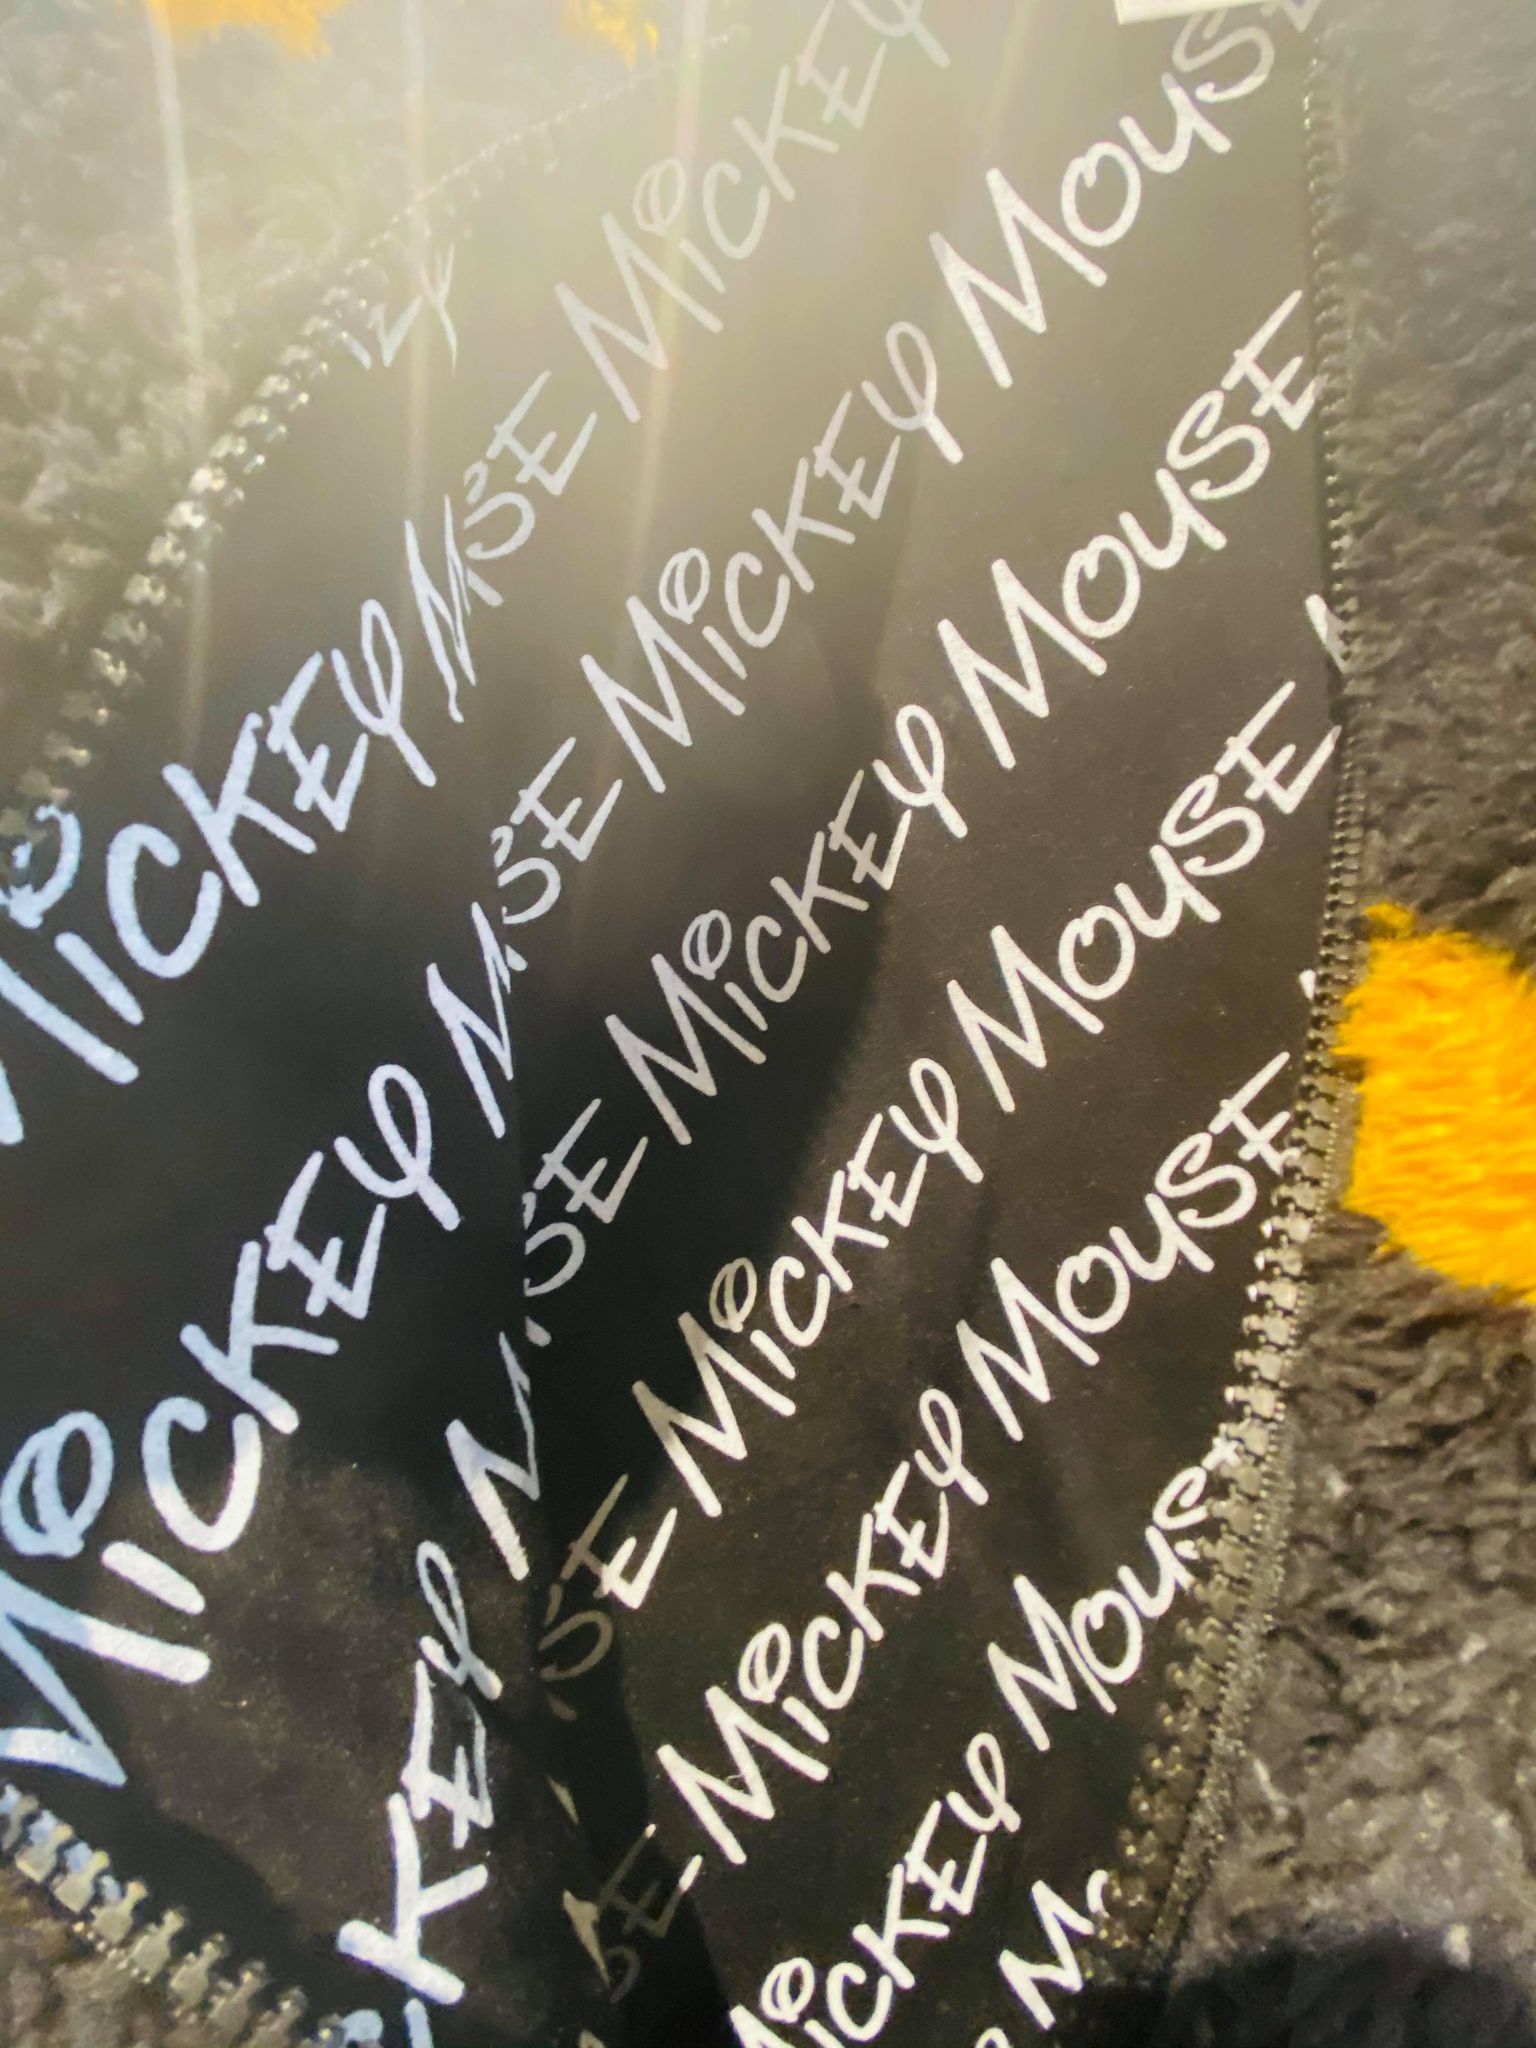 MICKEY
MICKEY MOUSE
MICKEY MICKEY MOUSE
MICKEY MICKEY MOUSE
MICKEY MOUSE
MICKEY MOUSE
MICKEY